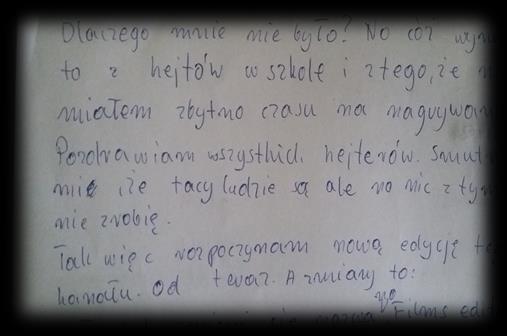 Dlaczego mnie nie było? No cóż
to z hejtów w szkole i z tego, że
miałem zbytno czasu na nagrywan
Pozdrawiam wszystkich hejterów. Smut
mi że tacy ludzie są ale no nic z tym
nie zrobię.
Tak więc rozpoczynam nową edycję te
kanału. Od teraz. A zmiany to:
nazwa Films edit